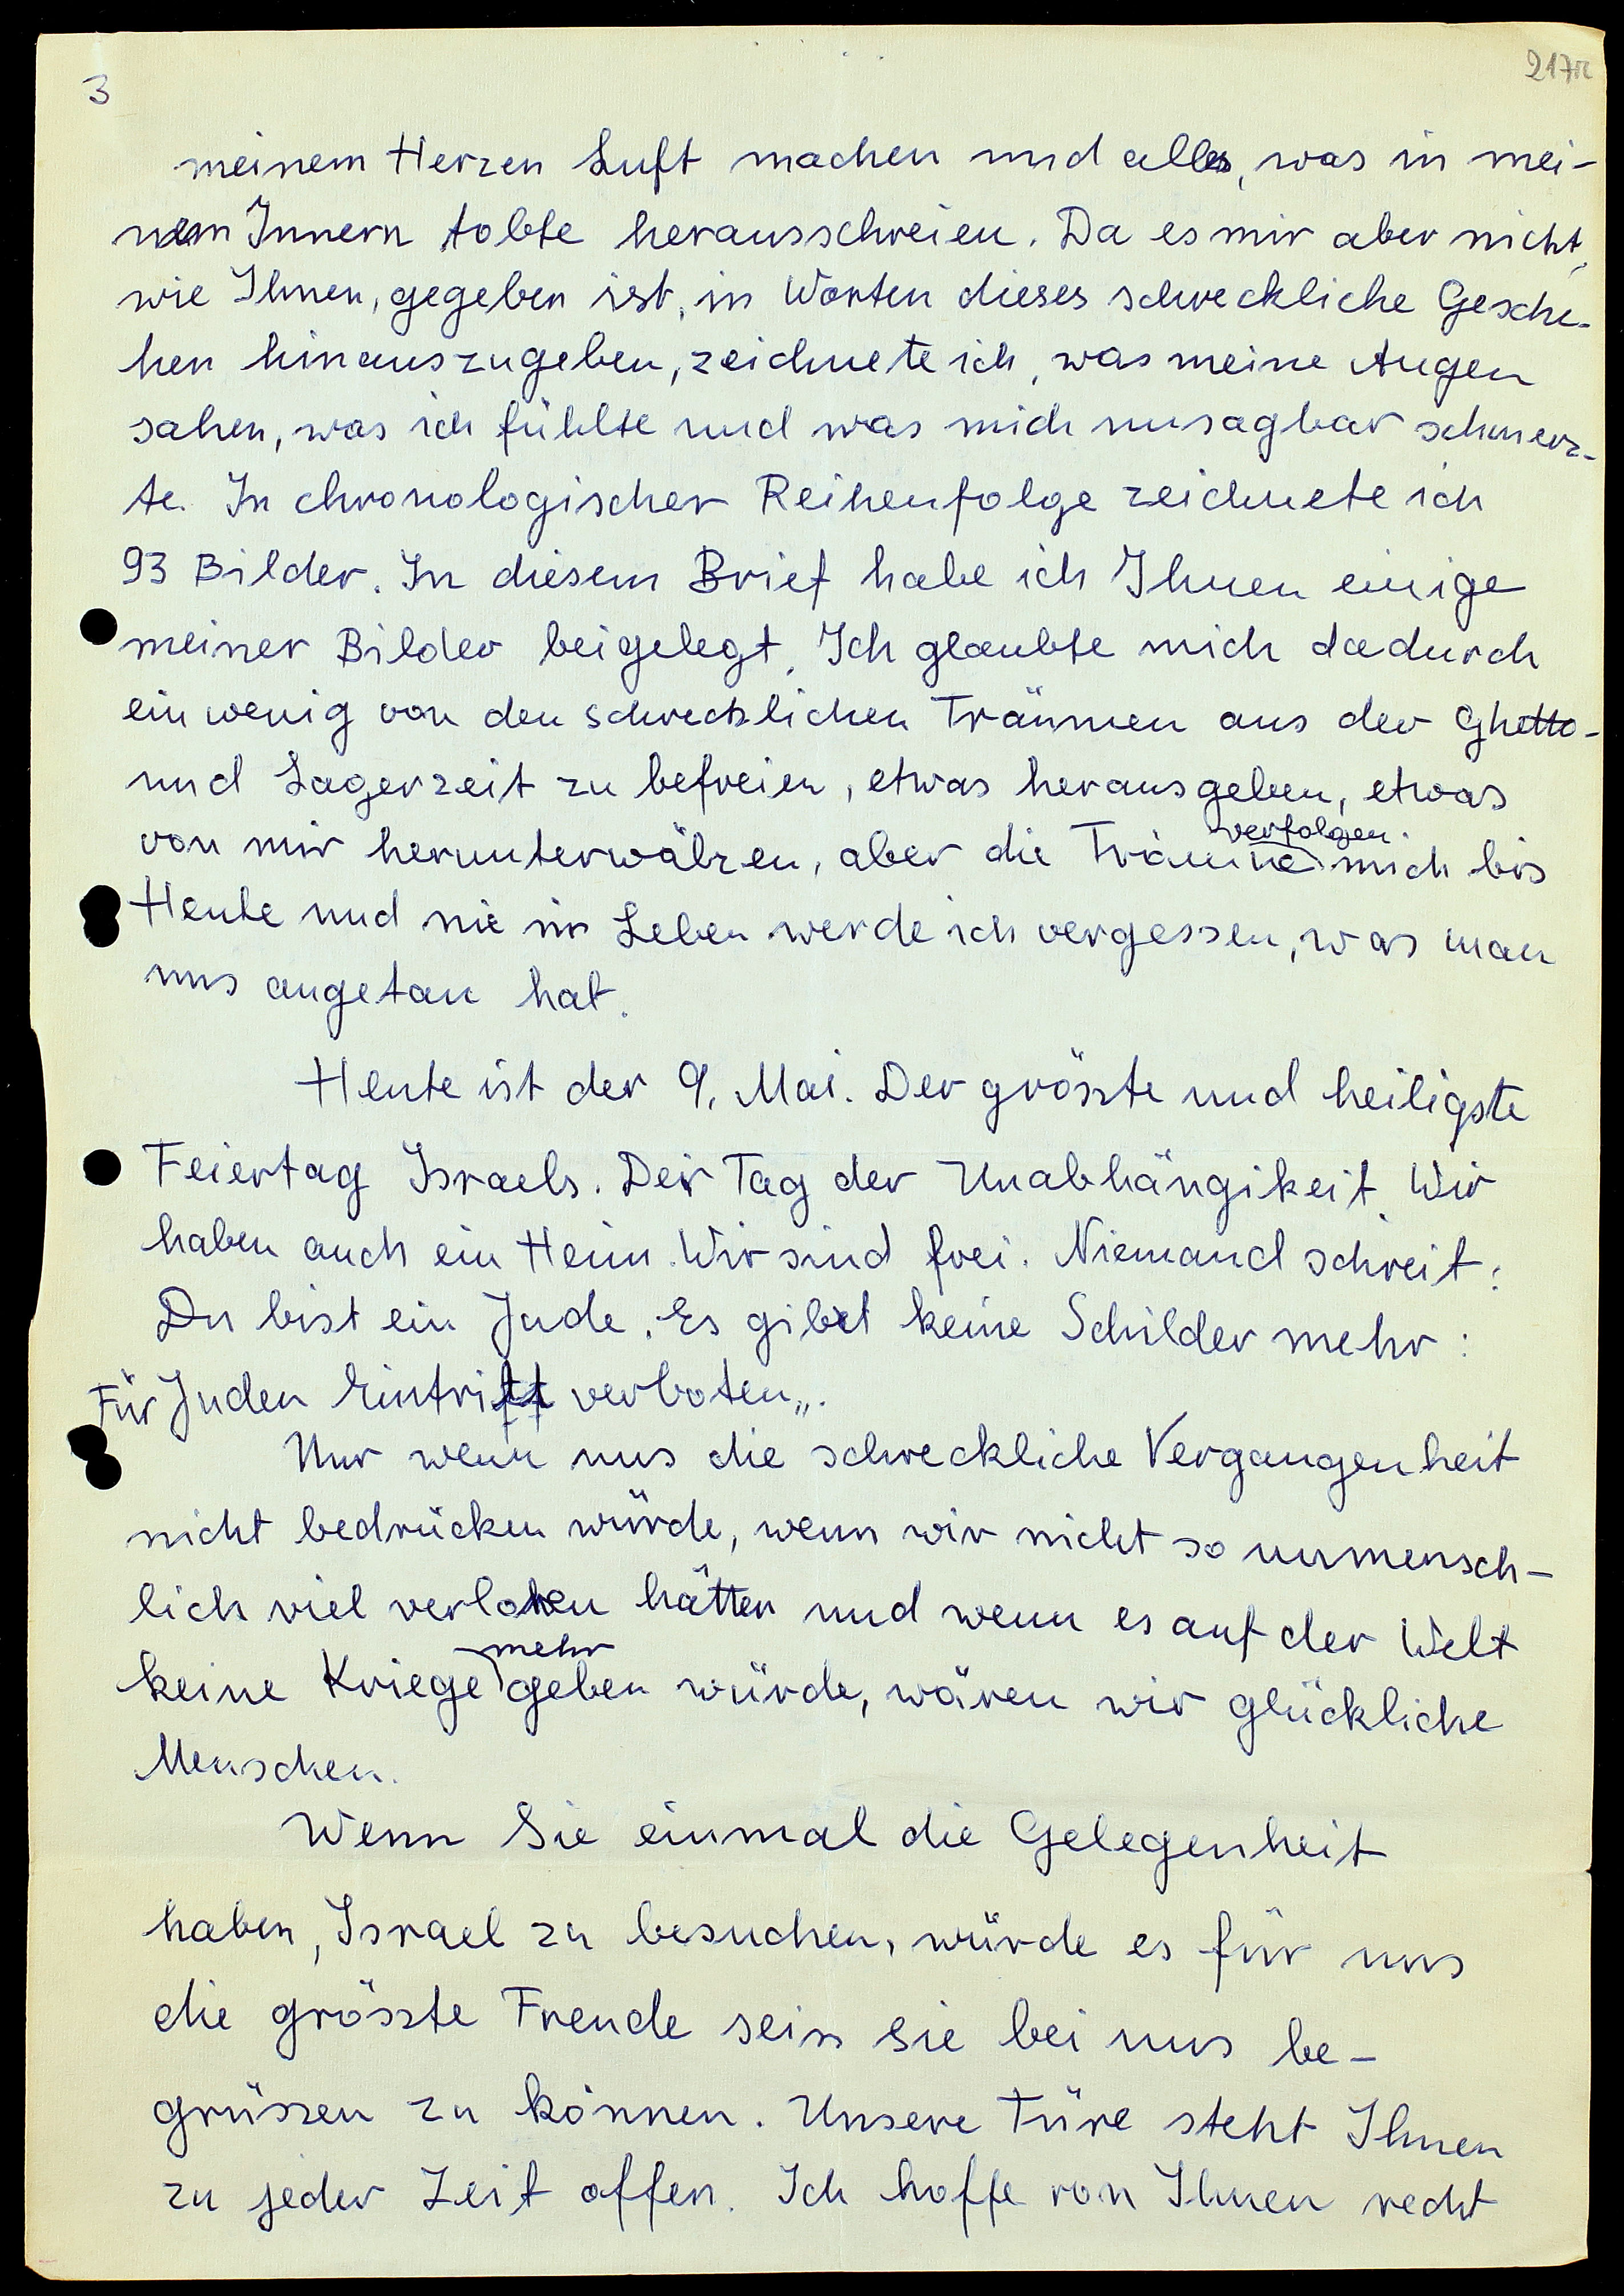 3
217r
meinem Herzen Luft machen und alles, was in mei-
nem Innern tobte herausschreien. Da es mir aber nicht,
wie Ihnen, gegeben ist, in Worten dieses schreckliche Gesche-
hen hinauszugeben, zeichnete ich, was meine Augen
sahen, was ich fühlte und was mich unsagbar schmerz-
te. In chronologischer Reihenfolge zeichnete ich
93 Bilder. In diesem Brief habe ich Ihnen einige
meiner Bilder beigelegt. Ich glaubte mich dadurch
ein wenig von den schrecklichen Träumen aus der Ghetto-
und Lagerzeit zu befreien, etwas herausgeben, etwas
von mir herunterwälzen, aber die Träume verfolgen mich bis
Heute und nie im Leben werde ich vergessen, was man
uns angetan hat.
Heute ist der 9. Mai. Der grösste und heiligste
Feiertag Israels. Der Tag der Unabhängikeit. Wir
haben auch ein Heim. Wir sind frei. Niemand schreit:
Du bist ein Jude. Es gibt keine Schilder mehr:
Für Juden Eintritt verboten„.
Nur wenn uns die schreckliche Vergangenheit
nicht bedrücken würde, wenn wir nicht so unmensch-
lich viel verloren hätten und wenn es auf der Welt
keine Kriege mehr geben würde, wären wir glückliche
Menschen.
Wenn Sie einmal die Gelegenheit
haben, Israel zu besuchen, würde es für uns
die grösste Freude sein sie bei uns be-
grüssen zu können. Unsere Türe steht Ihnen
zu jeder Zeit offen. Ich hoffe von Ihnen recht